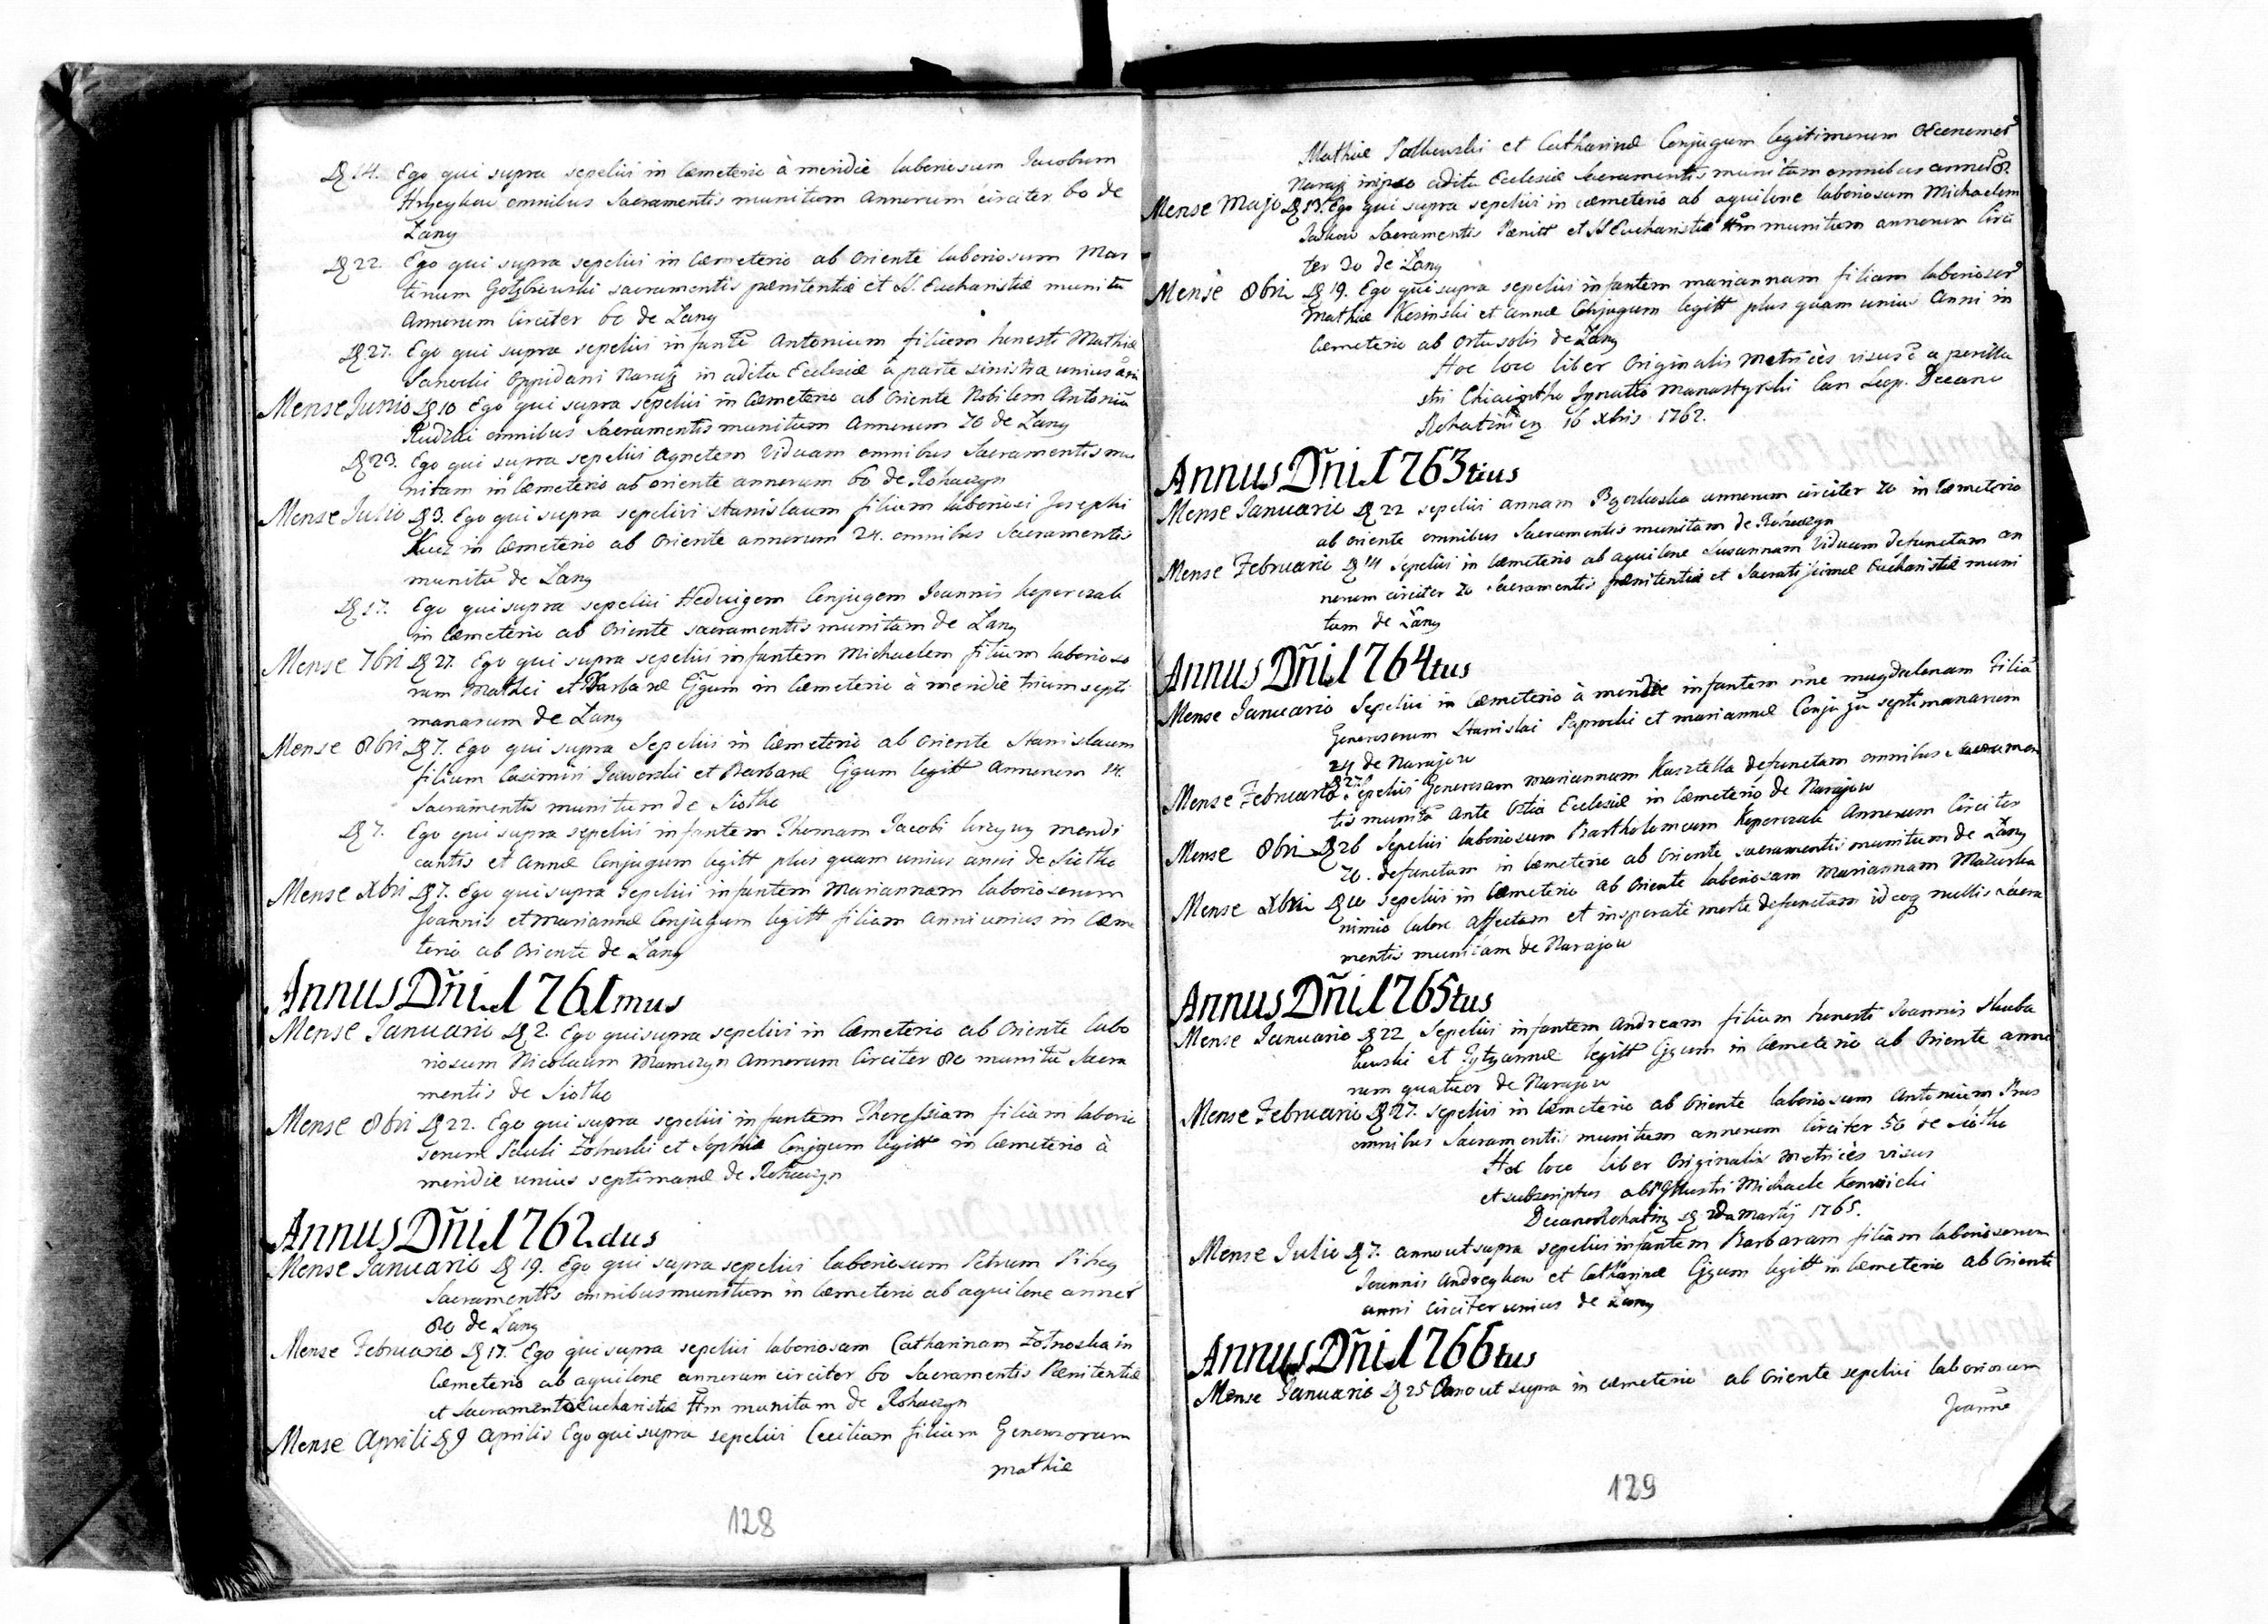 D 14. Ego qui supra sepelivi in Cæmeterio à meridie laboriosum Jacobum
Hryeykow omnibus Sacramentis munitum annorum circiter 60 de
Lany
D 22. Ego qui supra sepelivi in Cæmeterio ab Oriente laboriosum Mar
tinum sacramentis pænitentiæ et SS. Eucharistiæ munitū
Annorum Circiter 60 de Lany
D 27. Ego qui supra sepelivi infantē Antonium filium honesti Mathiæ
Sanocki Oppidani Naraj in aditu Ecclesiæ à parte sinistra unius
Mense Junio D 10 Ego qui supra sepelivi in Cæmeterio ab Oriente Nobilem Antoniū
Rudzki omnibus Sacramentis munitum Annorum 70 de Lany
D 23. Ego qui supra sepelivi Agnetem Viduam omnibus Sacramentis mu
nitam in Cæmeterio ab oriente annorum 60 de Rohaczyn
Mense Julio D 3. Ego qui supra sepelivi Stanislaum filium laboriosi Josephi
Kucz in Cæmeterio ab Oriente annorum 24. omnibus Sacramentis
munitū de Lany
D 17. Ego qui supra sepelivi Hedvigem Conjugem Joannis Koperczak
in Cæmeterio ab Oriente sacramentis munitam de Lany
Mense 7bri D 27. Ego qui supra sepelivi infantem Michaelem filium laborioso
rum Mathei et Barbaræ Cjgum in Cæmeterio à meridie trium septi
manarum de Lany
Mense 8bri D 7. Ego qui supra Sepelivi in Cæmeterio ab Oriente Stanislaum
filium Casimiri Jaworski et Barbaræ Cjgum legitt Annorum 14.
Sacramentis munitum de Siotko
D 7. Ego qui supra sepelivi infantem Thomam Jacobi mendi
cantis et Annæ Conjugum legitt plus quam unius anni de Siotko
Mense Xbri D 7. Ego qui supra sepelivi infantem Mariannam laboriosorum
Joannis et Mariannæ Conjugum legitt filiam Anni unius in Cæme
terio ab Oriente de Lany
Annus Dn̄i 1761mus
Mense Januario D 2. Ego qui supra sepelivi in Cæmeterio ab Oriente labo
riosum Nicolaum Mamczyn Annorum Circiter 80 munitū Sacra
mentis de Siotko
Mense 8bri D 22. Ego qui supra sepelivi infantem Theressiam filiam laborio
sorum Pauli Zołnoski et Sophiæ Conjgum legitt in Cæmeterio à
meridie unius septimanæ de Rohaczyn
Annus Dn̄i 1762dus
Mense Januario D 19. Ego qui supra sepelivi laboriosum Petrum
Sacramentis omnibus munitum in Cæmeterio ab aquilone annor
80 de Lany
Mense Februario D 17. Ego qui supra sepelivi laboriosam Catharinam Zołnoska in
Cæmeterio ab aquilone annorum circiter 60 Sacramentis Pænitentiæ
et Sacramento Eucharistiæ munitam de Rohaczyn
Mense Aprili D 9 Aprilis Ego qui supra sepelivi Ceciliam filiam Generosorum
Mathiæ
128
Mathiæ et Catharinæ Conjugum legitimorum
Naraj in aditu Ecclesiæ Sacramentis munitam omnibus
Mense Majo D 13. Ego qui supra sepelivi in cæmeterio ab aquilone laboriosum Michaelem
Sacramentis Pænitt et SS Eucharistiæ munitum annorum Circi
ter 30 de Lany
Mense 8bri D 19. Ego qui supra sepelivi infantem Mariannam filiam laboriosor
Mathiæ Kosinski et Annæ Conjugum legitt plus quam unius Anni in
Cæmeterio ab Ortu solis de Lany
Hoc loco liber Originalis Metrices visus ē a perillu
stri Ignatio Manastyrski Can Leop. Decano
Rohatiniens 16 Xbris 1762.
Annus Dn̄i 1763tius
Mense Januario D 22 sepelivi Annam annorum circiter 70 in Cæmeterio
ab oriente omnibus Sacramentis munitam de Rohaczyn
Mense Februario D 14 Sepelivi in Cæmeterio ab aquilone Susannam Viduam defunctam an
norum circiter 70 Sacramentis pænitentiæ et Sacratissimæ Eucharistiæ muni
tam de Lany
Annus Dn̄i 1764tus
Mense Januario Sepelivi in Cæmeterio à meridie infantem nn̄e Magdalenam Filiā
Generosorum Stanislai Paprocki et Mariannæ Conjugū septimanarum
24 de Narajow
Mense Februario D 27 Sepelivi Generosam Mariannam Kusztella defunctam omnibus Sacramen
tis munitā Ante Ostia Ecclesiæ in Cæmeterio de Narajow
Mense 8bri D 26 Sepelivi laboriosum Bartholomeum Koperczak Annorum Circiter
70. defunctum in Cæmeterio ab Oriente sacramentis munitum de Lany
Mense Xbri D 10 sepelivi in Cæmeterio ab Oriente laboriosam Mariannam Mazurka
nimio affectam et insperati morte defunctam ideoq nullis Sacra
mentis munitam de Narajow
Annus Dn̄i 1765tus
Mense Januario D 22 Sepelivi infantem Andream filium honesti Joannis Skuba
et legitt Cjgum in Cæmeterio ab Oriente anno
rum quatuor de Narajow
Mense Februario D 27. Sepelivi in Cæmeterio ab Oriente laboriosum Antonium Rus
omnibus Sacramentis munitum annorum Circiter 50 de Siotko
Hoc loco liber Originalis Metrices visus
et subscriptus ab Illustri Michaele
Decano Rohatin D 2da Martij 1765.
Mense Julio D 7. anno ut supra sepelivi infantem Barbaram filiam laboriosorum
Joannis Andreykow et Catharinæ Cjgum legitt in Cæmeterio ab Oriente
anni circiter unius de Lany
Annus Dn̄i 1766tus
Mense Januario D 25 Anno ut supra in cæmeterio ab Oriente sepelivi laboriosum
Joannē
129